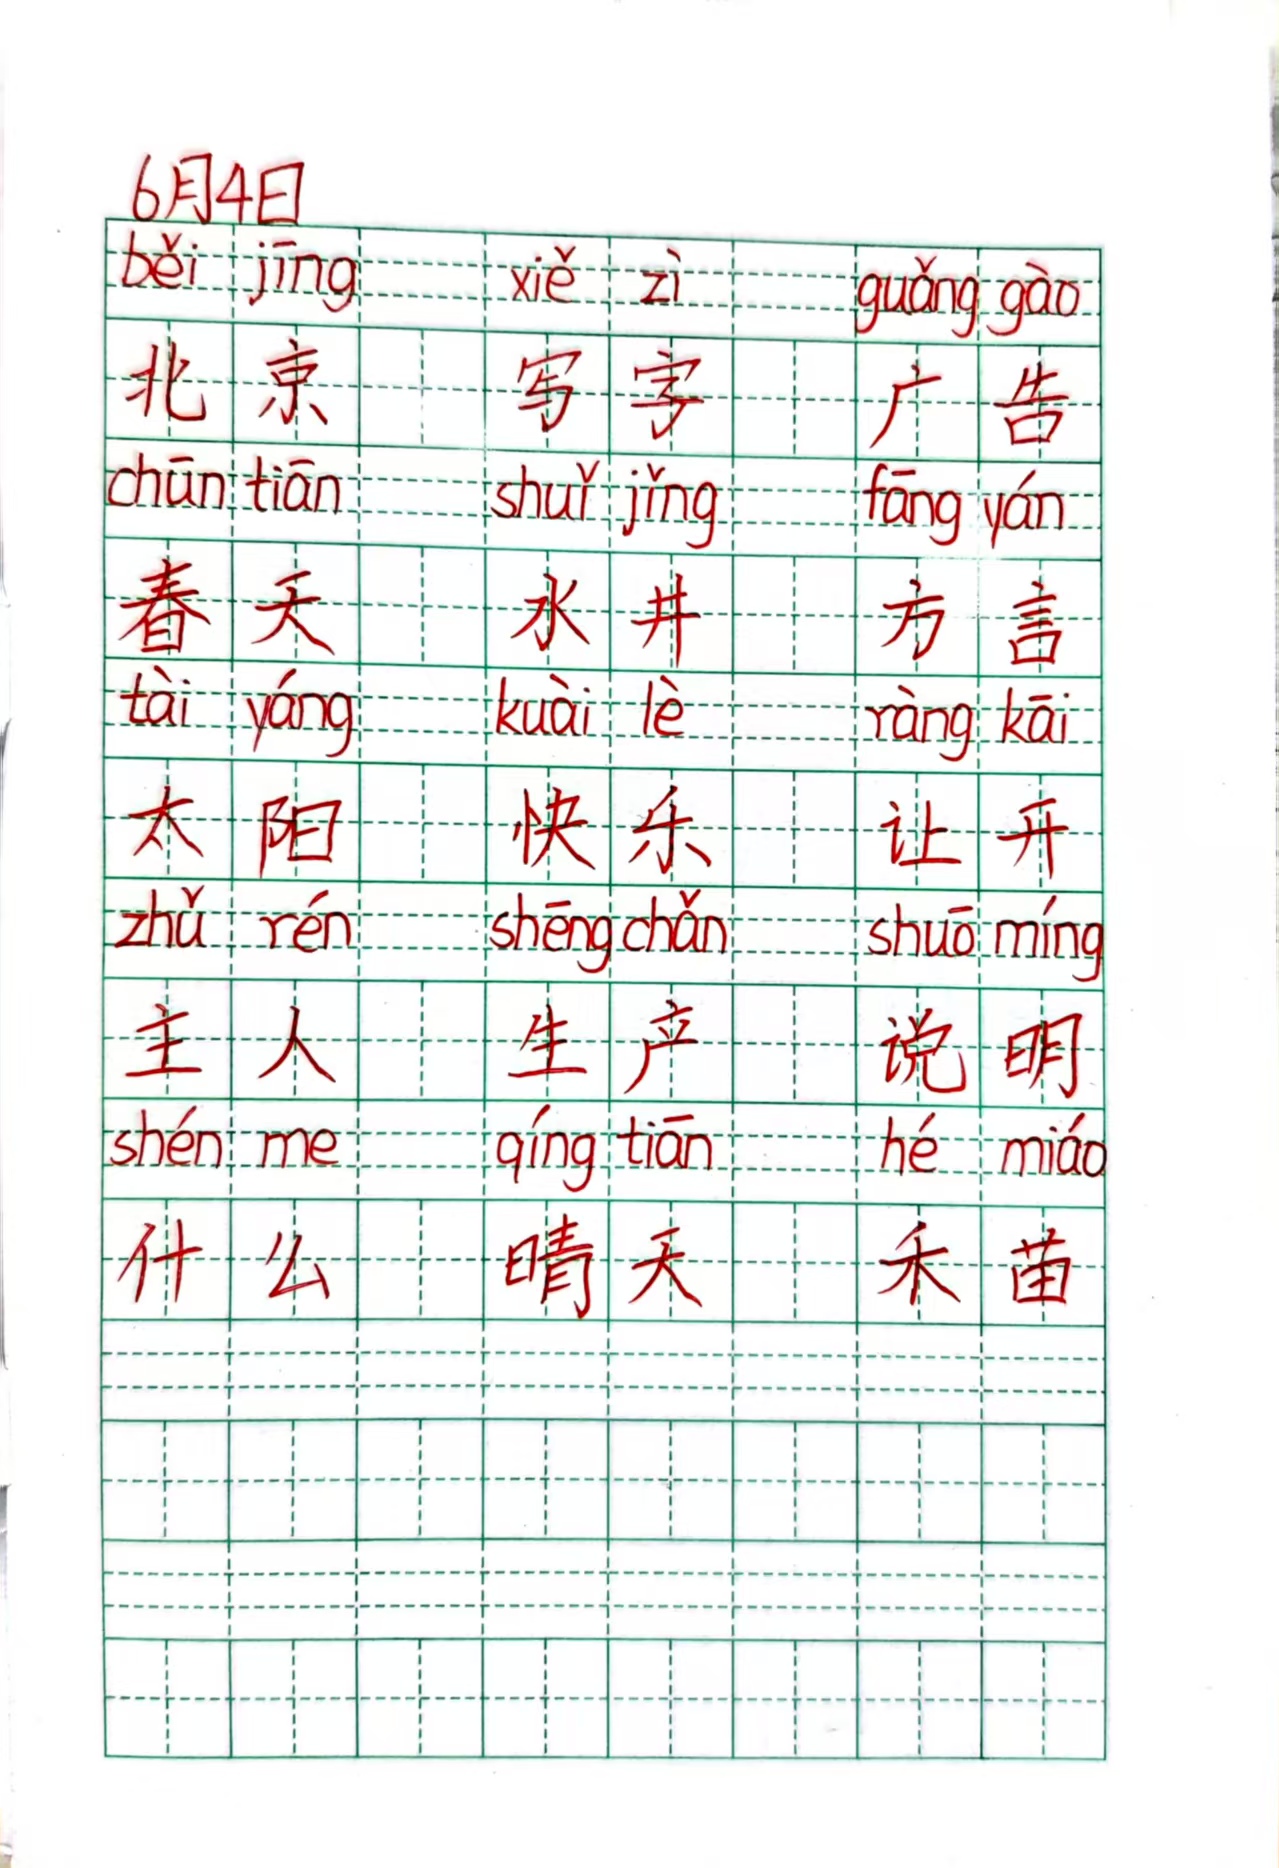 6月4日
běi jīng xiě zì guǎng gào
北京 写字 广告
chūn tiān shuǐ jǐng fāng yán
春天 水井 方言
tài yáng kuài lè ràng kāi
太阳 快乐 让开
zhǔ rén shēng chǎn shuō míng
主人 生产 说明
shén me qíng tiān hé miáo
什么 晴天 禾苗